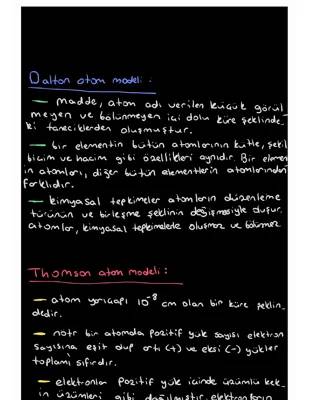 Dalton atom modeli:
— madde, atom adı verilen küçük görül
meyen ve bölünmeyen içi dolu küre şeklinde-
ki taneciklerden oluşmuştur.
— bir elementin bütün atomlarının kütle, şekil
biçim ve hacim gibi özellikleri aynıdır. Bir elemen
in atomları, diğer bütün elementlerin atomlarından
farklıdır.
— kimyasal tepkimeler atomların düzenleme
türünün ve birleşme şeklinin değişmesiyle
atomlar, kimyasal tepkimelerde oluşmaz ve bölünmez
Thomson atom modeli:
— atom yarıçapı 10⁻⁸ cm olan bir küre şeklin-
dedir.
— nötr bir atomda pozitif yük sayısı elektron
sayısına eşit olup artı (+) ve eksi (-) yükler
toplamı sıfırdır.
— elektronlar pozitif yük içinde üzümlü kek-
in üzümleri gibi dağılmıştır. elektronların